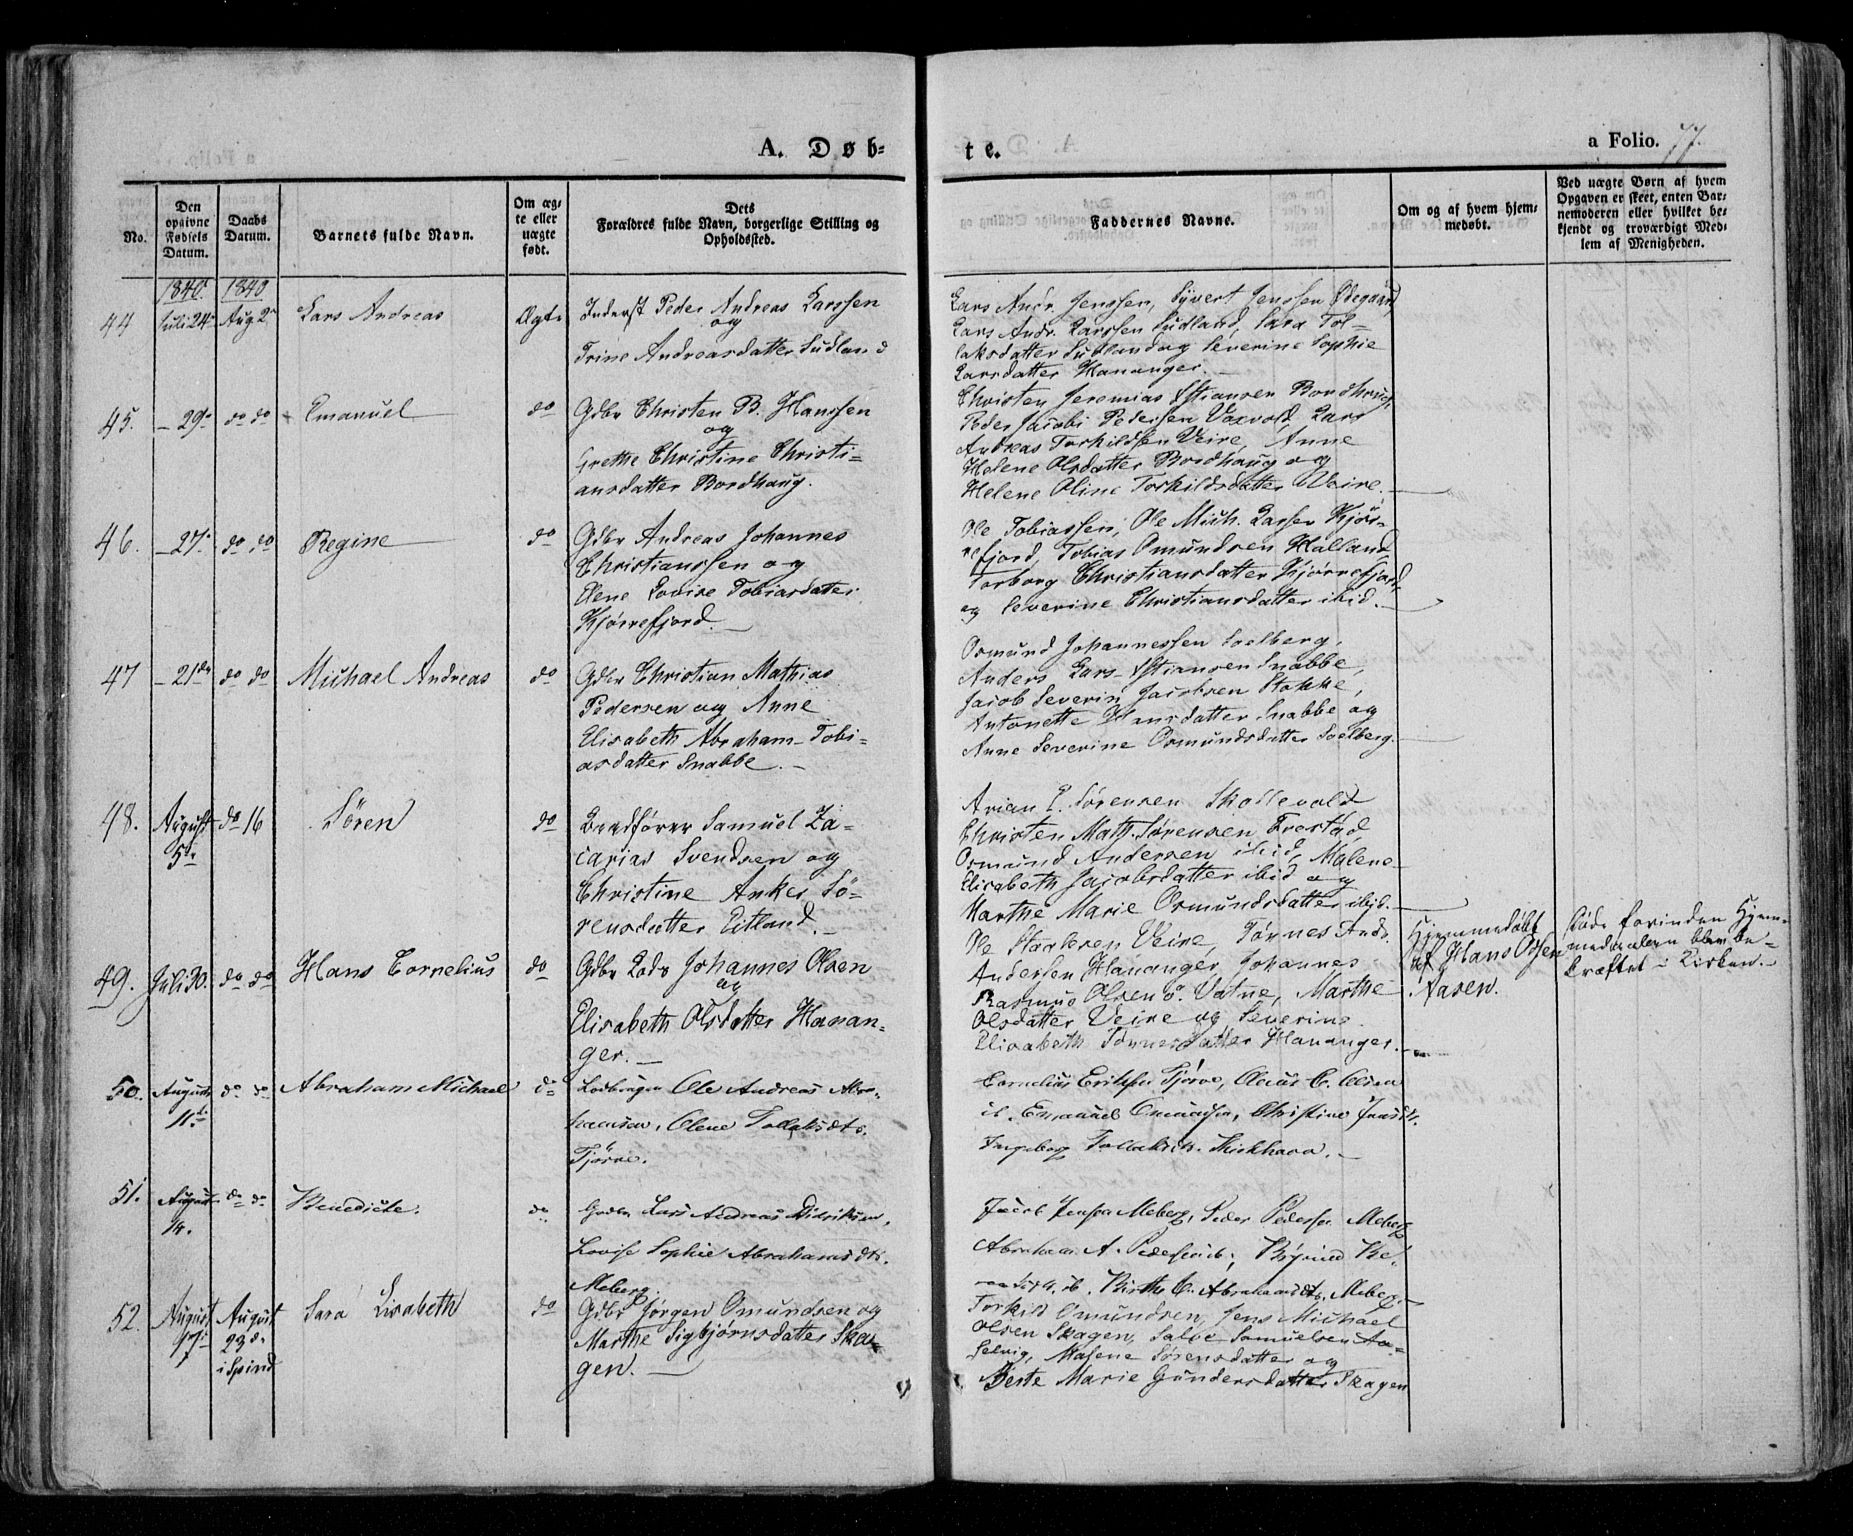 A. Døb-
te.
a Folio. 77.
No.
Den opgivne Fødsels Datum.
Daabs Datum.
Barnets fulde Navn.
Om ægte eller uægte født.
Dets Forældres fulde Navn, borgerlige Stilling og Opholdssted.
Faddernes Navne.
Om og af hvem hjemmedøbt.
Ved uægte Børn af hvem Opgaven er skeet, enten Barnemoderen eller hvilket bekjendt og troværdigt Medlem af Menigheden.
1840. 1840
44 Juli 24de Aug 2de Lars Andreas Ægte
Inderst Peder Andreas Larssen
og
Trine Andreasdatter Sudland
Lars Andr Jenssen, Syvert Jenssen Ødegaard,
Lars Andr. Larssen Sudland, Sara Tol-
laksdatter Sudland og Severine Sophie
Larsdatter Hananger.
45. — 29de do do Emanuel do
Gdbr Christen B. Hanssen
og
Grethe Christine Christi-
ansdatter Bordhaug.
Christen Jeremias Xstiansen Bordhaug,
Peder Jacobi Pedersen Vaxvold, Lars
Andreas Torkildsen Veire, Anne
Helene Olsdatter Bordhaug og
Helene Oline Torkildsdatter Veire.
46. — 27de do do Regine do
Gdbr Andreas Johannes
Christianssen og
Elene Lovise Tobiasdatter
Kjørrefjord.
Ole Tobiassen, Ole Mich. Larsen Kjør-
refjord, Tobias Omundsen Halland,
Torborg Christiansdatter Kjørrefjord,
og Severine Christiansdatter ibid.
47 — 21de do do Michael Andreas do
Gdbr Christian Mathias
Pedersen og Anne
Elisabeth Abraham-Tobi-
asdatter Snabbe.
Osmund Johannessen Soelberg,
Anders Lars Xstiansen Snabbe,
Jacob Severin Jacobsen Stokke,
Antonette Hansdatter Snabbe og
Anne Severine Osmundsdatter Soelberg.
48. August 5te do 16 Søren do
Brødfører Samuel Za-
carias Svendsen og
Christine Anker Sø-
rensdatter Eitland.
Arian E. Sørensen Skollevold
Christen Math. Sørensen Frestad,
Osmund Andersen ibid, Malene
Elisabeth Jacobsdatter ibid og
Marthe Marie Osmundsdatter ibid.
49. Juli 30. do do Hans Cornelius do
Gdbr Lods Johannes Olsen
og
Elisabeth Olsdatter Hanan-
ger.
Ole Starksen Veire, Tørnes Ands.
Andersen Hananger, Johannes
Rasmus Olsen ø. Vatne, Marthe
Olsdatter Veire og Severine
Elisabeth Tørnesdatter Hananger.
Hjemmedøbt
af Hans Olsen
Aasen.
Døde forinden Hjem-
medaaben blev be-
kræftet i Kirken.
50. August 11te do do Abraham Michael do
Ole Andreas Abra-
hamsen, Olene Tollaksdtr.
Tjørve.
Cornelius Eriksen Tjørve, Olaus C. Olsen
il. Emanuel Omundsen, Christine Jensdtr.
Ingeborg Tollaksdtr.
51. August 14. do do Benedicte. do
Gdbr Lars Andreas Didriksen,
Lovise Sophie Abrahamsdtr.
Meberg.
Jacob Jensen Meberg, Peder Pedersen Meberg
Abraham A. Pedersen ib.,
ib. Birthe C. Abrahamsdtr. Meberg
52. August 17de August 23de i Spind Sara Lisabeth do
Gdbr Jørgen Omundsen og
Marthe Sigbjørnsdatter Ska-
gen.
Torkild Omundsen, Jens Michael
Olsen Skagen, Salve Samuelsen Aa-
selvig, Malene Sørensdatter og
Berte Marie Gundersdatter Skagen